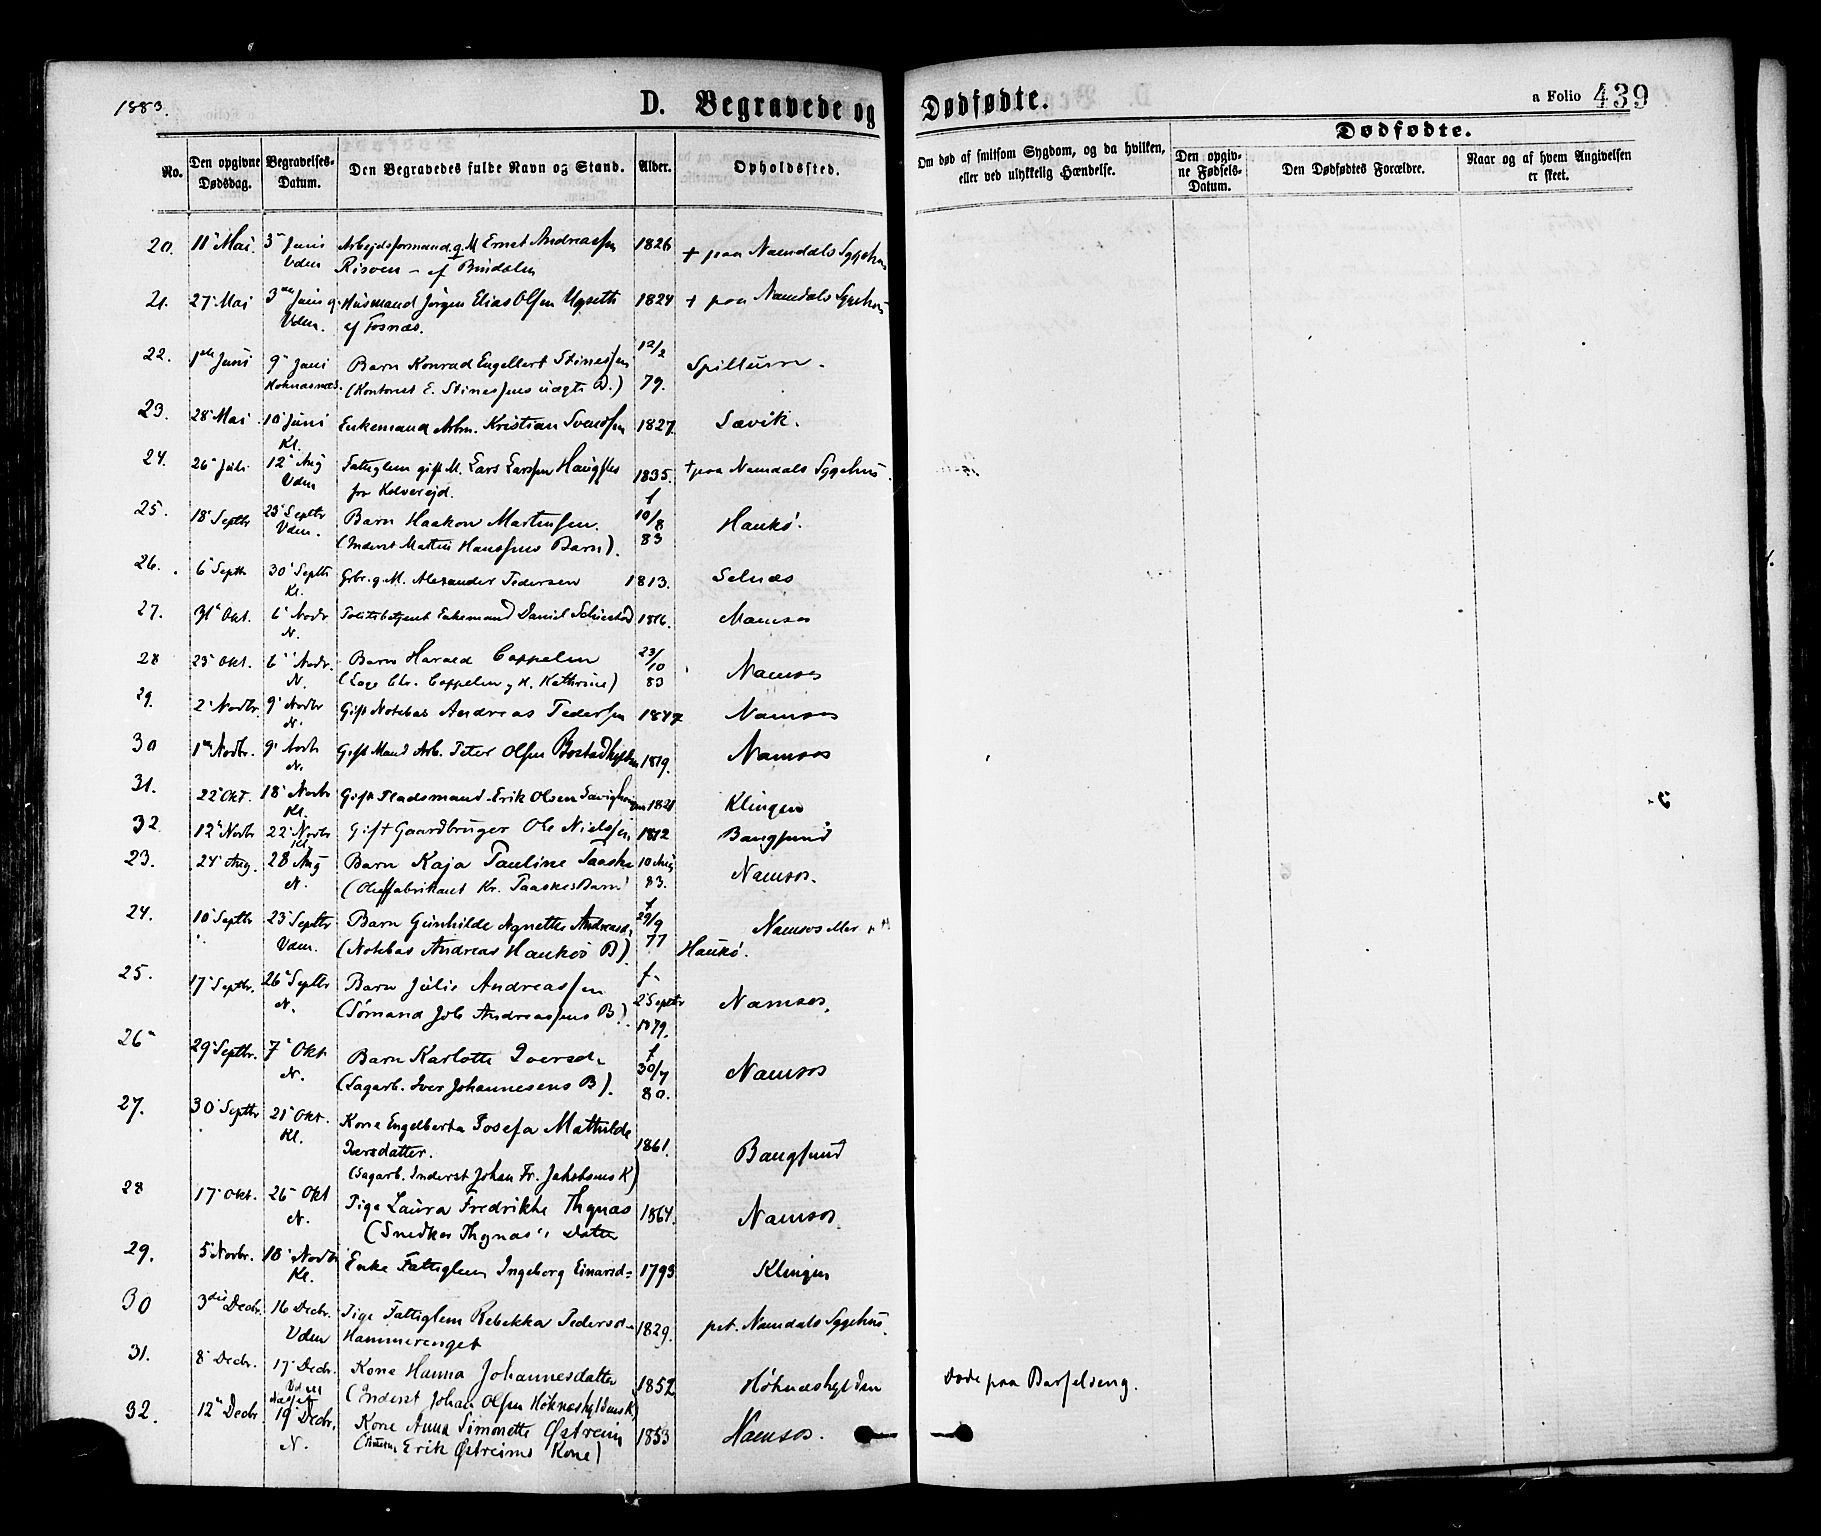 1883.
D. Begravede og Dødfødte.
a Folio 439
No.
Den opgivne Dødsdag.
Begravelses-Datum.
Den Begravedes fulde Navn og Stand.
Alder.
Opholdssted.
Om død af smitsom Sygdom, og da hvilken, eller ved ulykkelig Hændelse.
Dødfødte.
Den opgivne Fødsels-Datum.
Den Dødfødtes Forældre.
Naar og af hvem Angivelsen er skeet.
20. 11 Mai. 3 Juni Arbejdsformand g. M Ernst Andreassen 1826 + paa Namdals Sygehus
Uden Risven - af Bindalen
21. 27 Mai 3 Juni Husmand Jørgen Elias Olsen Ugseth 1824 + paa Namdals Sygehus
Uden. af Fosnæs.
22. 1ste Juni 9 Juni Barn Konrad Engellert Stinessen 12/2 Spillum.
(Kontorist E. Stinessens B.) 79.
23. 28 Mai 10 Juni Enkemand Arbm. Kristian Svendsen 1827. Sævik.
Kl.
24. 26 Juli 12 Aug Fattiglem gift M. Lars Larssen 1835. + paa Namdals Sygehus.
Uden fra Kolvereid.
25. 18 Septbr 23 Septbr Barn Haakon Martinsen. f 10/8 Haukø.
Uden. (Inderst Martin Hanssens Barn). 83
26. 6 Septb 30 Septb Grbr. g. M. Alexander Pedersen 1813. Selnæs
Kl.
27. 31 Okt. 6 Novbr Politibetjent Enkemand Daniel 1816. Namsos
N.
28 23 Okt. 6 Novbr. Barn Harald Cappelen 23/10 Namsos
N. (Chr. Cappelen og H. Kathrine) 83
29. 2 Novbr. 9 Novbr Gift Notebas Andreas Pedersen 1847 Namsos
N.
30 1 Novbr. 9 Novb Gift Mand Arb. Peter Olsen 1819. Namsos
N.
31. 22 Okt. 18 Novbr Gift Pladsmand Erik Olsen 1821 Klingen
Kl.
32. 12 Novbr 22 Novbr Gift Gaardbruger Ole Nielsen 1812 Bangsund
Kl.
23. 24 Aug. 28 Aug Barn Kaja Pauline Taaske 10 Aug Namsos.
N. (Kr. Taaskes Barn) 83.
24. 10 Septbr 23 Septbr Barn Gunhilde Agnette Andreasd. f 29/9 Namsos eller
Uden. (Notebas Andreas Haukøs B). 77 Haukø.
25. 17 Septbr. 26 Septbr Barn Julie Andreassen f. Namsos.
N. (Sømand Job Andreassens B). 2 Septbr 1879.
26 29 Septbr. 7 Okt Barn Karlotte Iversd. f 30/7 Namsos
N. (Sagarb. Iver Johannesens B). 80.
27. 30 Septbr 21 Okt. Kone Engelberta Josefa Mathilde 1861. Bangsund
Kl. Iversdatter.
(Sagarb. Inderst Johan Fr. Jakobsens K)
28 17 Okt. 26 Okt Pige Laura Fredrikke Thynæs 1864. Namsos.
N. (Snedker Thynæs's Datter
29. 5 Novbr. 18 Novbr Enke Fattiglem Ingeborg Einarsd. 1793 Klingen
Kl.
30 3die Decbr. 16 Decbr. Pige Fattiglem Rebekka Pedersd. 1829. pet. Namdals Sygehus.
Uden Hammerenget
31. 8 Decbr. 17 Decbr. Kone Hanna Johannesdatter 1852 Høknæshylden Døde paa Barselseng.
Uden (Inderst Johan Olsen Høknæshyldens K)
32. 12 Decbr 19 Decbr. Kone Anna Simonette Østreim 1853 Namsos.
N. (Erik Østreims Kone)